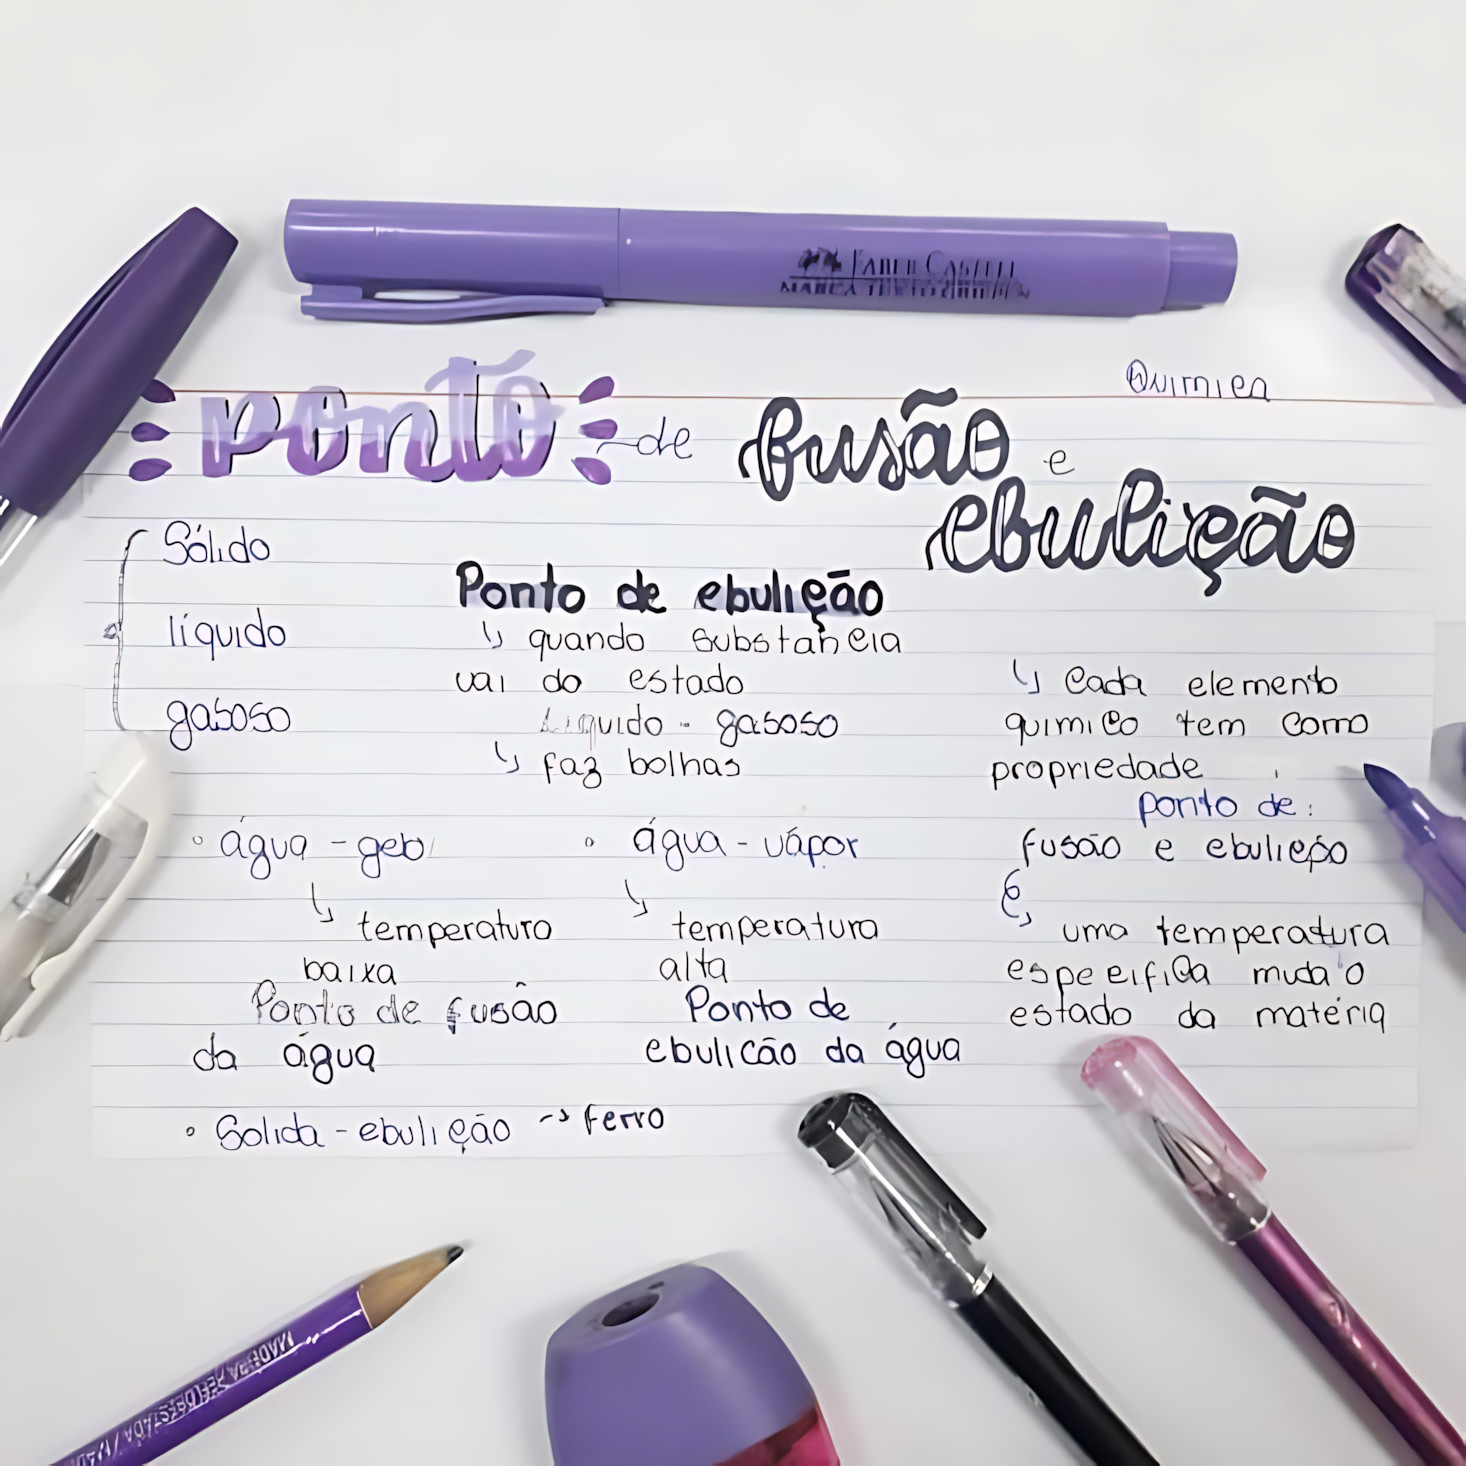 FABER CASTELL
MARCA TEXTO
Química
ponto de fusão e
ebulição
Sólido
líquido
gasoso
Ponto de ebulição
↳ quando substância
vai do estado
Líquido - gasoso
↳ faz bolhas
• água - gelo
↳ temperatura
baixa
Ponto de fusão
da água
• água - vápor
↳ temperatura
alta
Ponto de
ebulicão da água
• Solida - ebulição → ferro
↳ Cada elemento
químico tem como
propriedade
ponto de:
fusão e ebulição
↳ uma temperatura
especifica muda o
estado da matéria